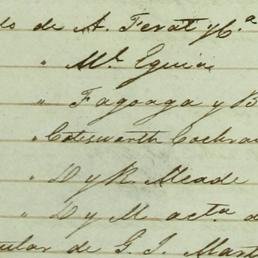 do de A. Ferat y Ca
" Ml. Eguia
" Fagoaga y B
" Cotesworth Cochran
" D y R. Meade
" D y M acta. d
ular de G. J. Mart